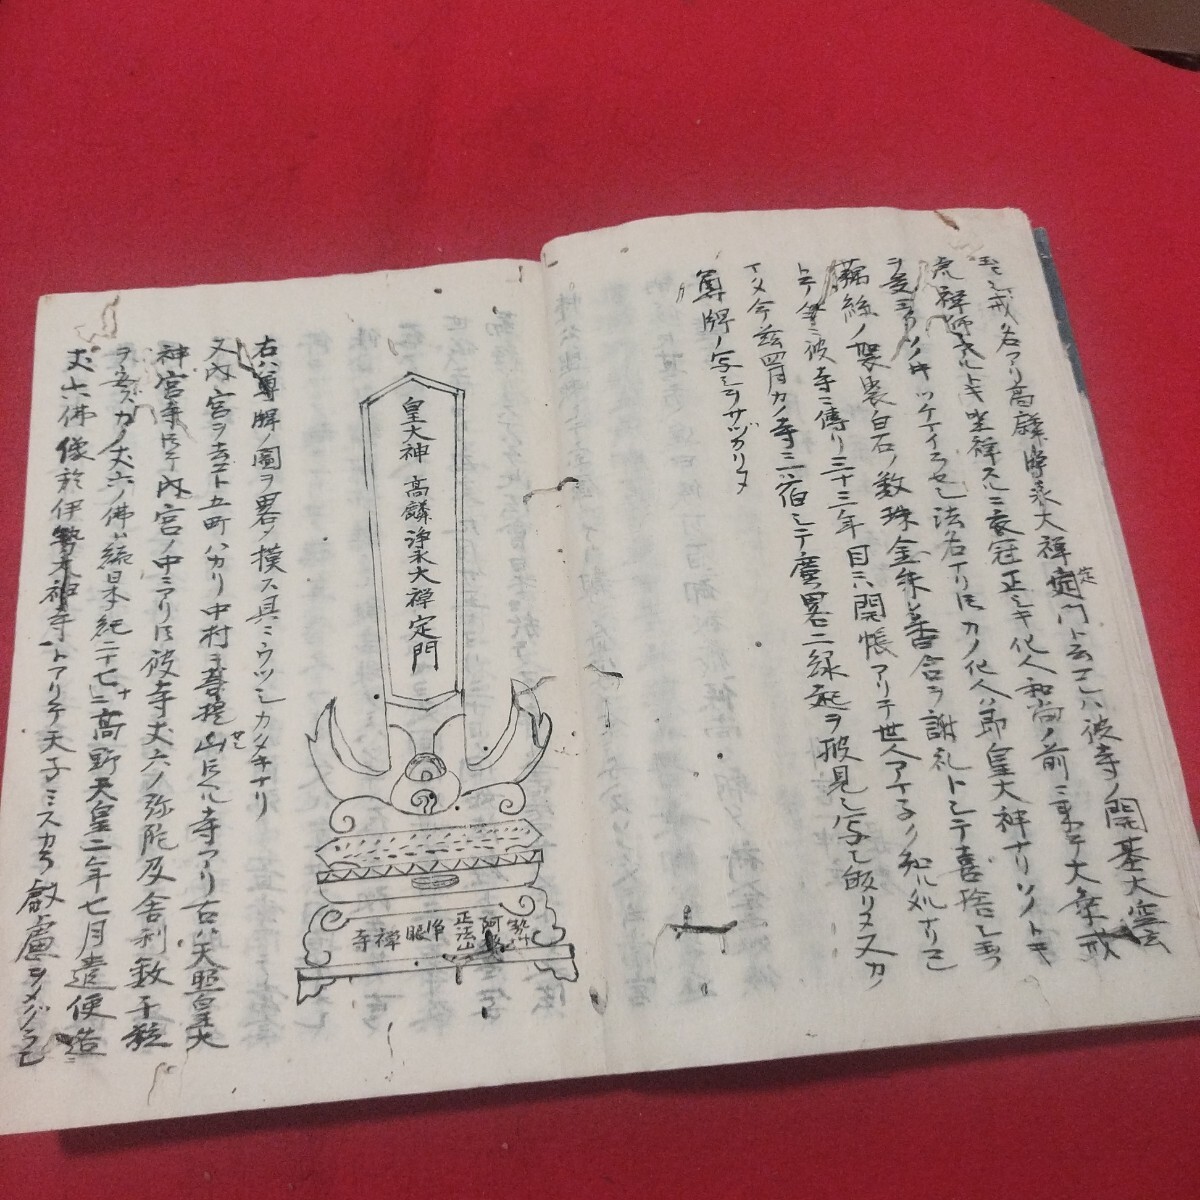 玉ヒシ戒名アリ高麟浄永大禅定門ト云コレハ彼寺ノ開基大空玄
虎禅師アルトキ坐禅スルニ衣冠正シキ化人和尚ノ前ニ来テ大乗戒
ヲ受玉フソノキツケイラセシ法名ナリ化人ハ即皇大神ナリソノトキ
藕絲ノ袈裟白石ノ数珠金朱香合ヲ謝礼トシテ喜捨シ玉フ
トテ今ニ彼寺ニ傳リ三十三年目ニハ開帳アリテ世人アマ子ク知ル処ナリ
イヌ今茲四月カノ寺ニ宿シテ廣略二縁起ヲ披見シ写シ皈リヌ又カノ
尊牌ノ写シヲサヅカリヌ
皇大神 高麟淨永大禅定門
勢州 阿 正法山 浄眼禅寺
右ハ尊牌ノ圖ヲ畧メ模ス具ニウツシカタキナリ
又内宮ヲ去コト五町ハカリ中村ニ菩提山ト云ヘル寺アリ古ハ天照皇大
神宮寺ニテ内宮ノ中ニアリ彼寺丈六ノ弥陀及舍利数千粒
ヲ安ズカノ丈六ノ佛ハ續日本紀二十七ニ高野天皇二年七月遣使造
丈六佛像於伊勢大神寺トアリテ天子ミスカラ叡慮ヲメグラシ